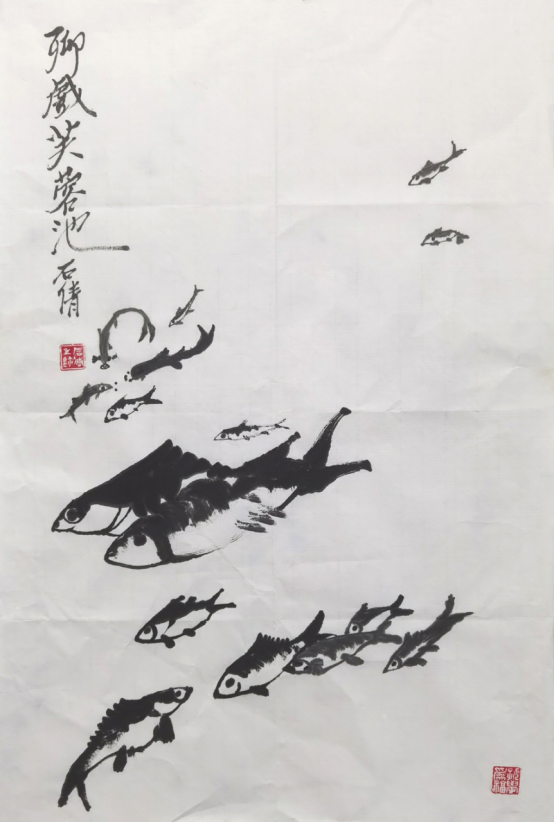 聊戲芙蓉池 石倩